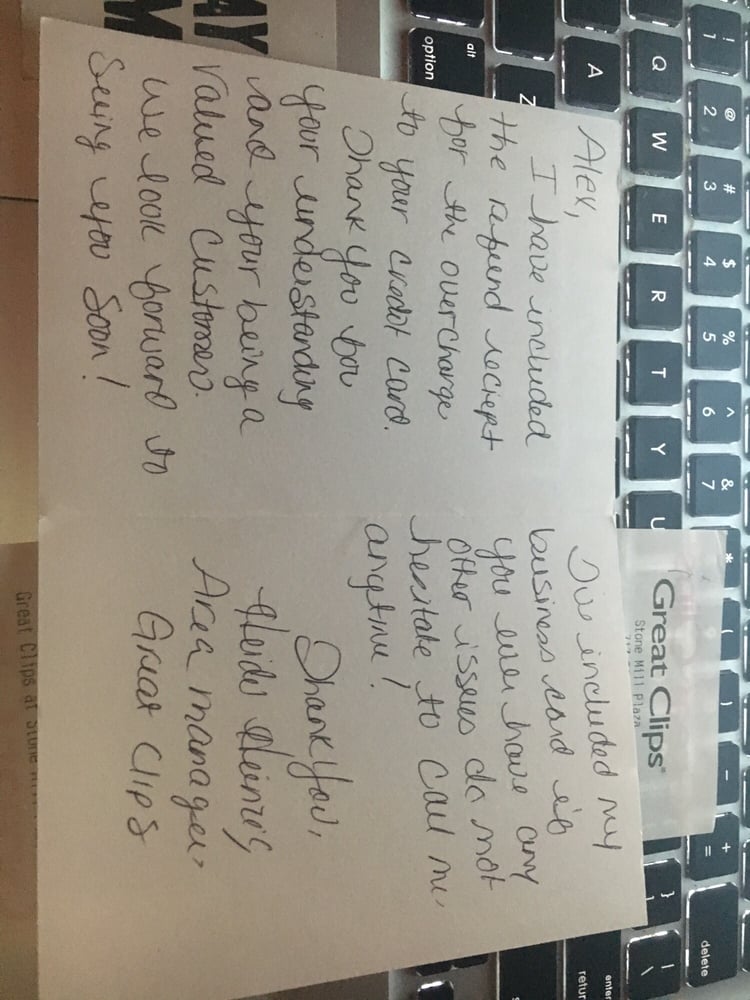 Alex,
I have included
the refund reciept
for the overcharge
to your credit card.
Thank you for
your understanding
and your being a
valued customer.
We look forward to
Seeing you soon!
I've included my
business card if
you ever have any
other issues do not
hesitate to call me,
anytime!
Thank you,
Heidi
Area manager,
Great Clips
Great Clips®
Stone Mill Plaza
Great Clips at Stone
AY
M
! @ # $ % ^ & * ( ) - + delete
1 2 3 4 5 6 7 =
Q W E R T Y U } | \
A enter
return
Z
alt
option